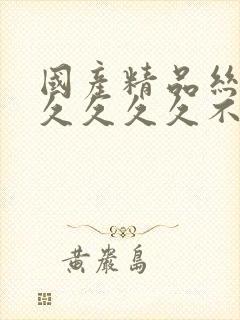 國產精品絲
久久久久不
黃巖島